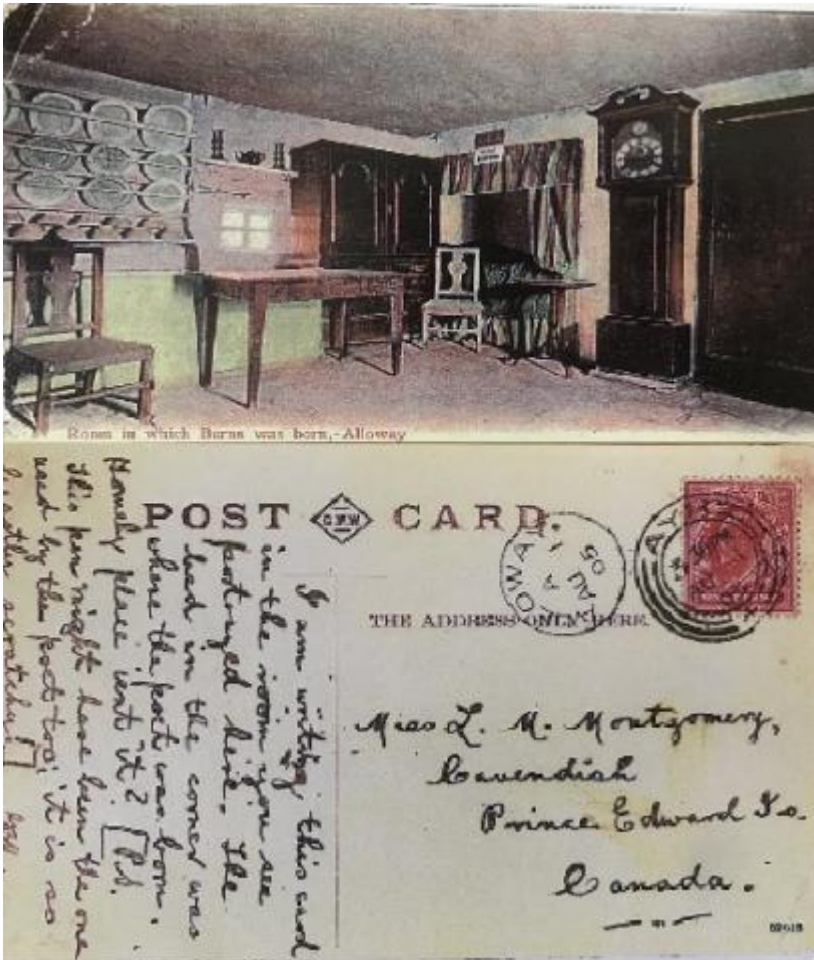 Room in which Burns was born,-Alloway
POST G.M.W CARD.
ALLOWAY
AU
05
AYR
THE ADDRESS ONLY HERE.
I am writing this card
in the room you see
portrayed here. The
bed in the corner was
where the poet was born.
Homely place isn't it? [P.S.
This pen might have been the one
used by the poet too; it is so
scratchy.]
Miss L. M. Montgomery,
Cavendish
Prince Edward Is.
Canada.